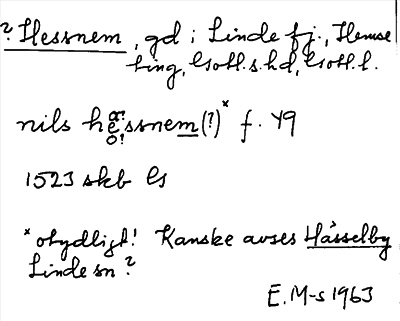 ? Hessnem, gd i Linde fj., Hemse
ting, Gotl.s.hd, Gotl.l.
nils hessnem(?)* f. 49
a?
o?
1523 skb Gs
* otydligt! Kanske avses Hässelby
Linde sn?
E.M-s 1963